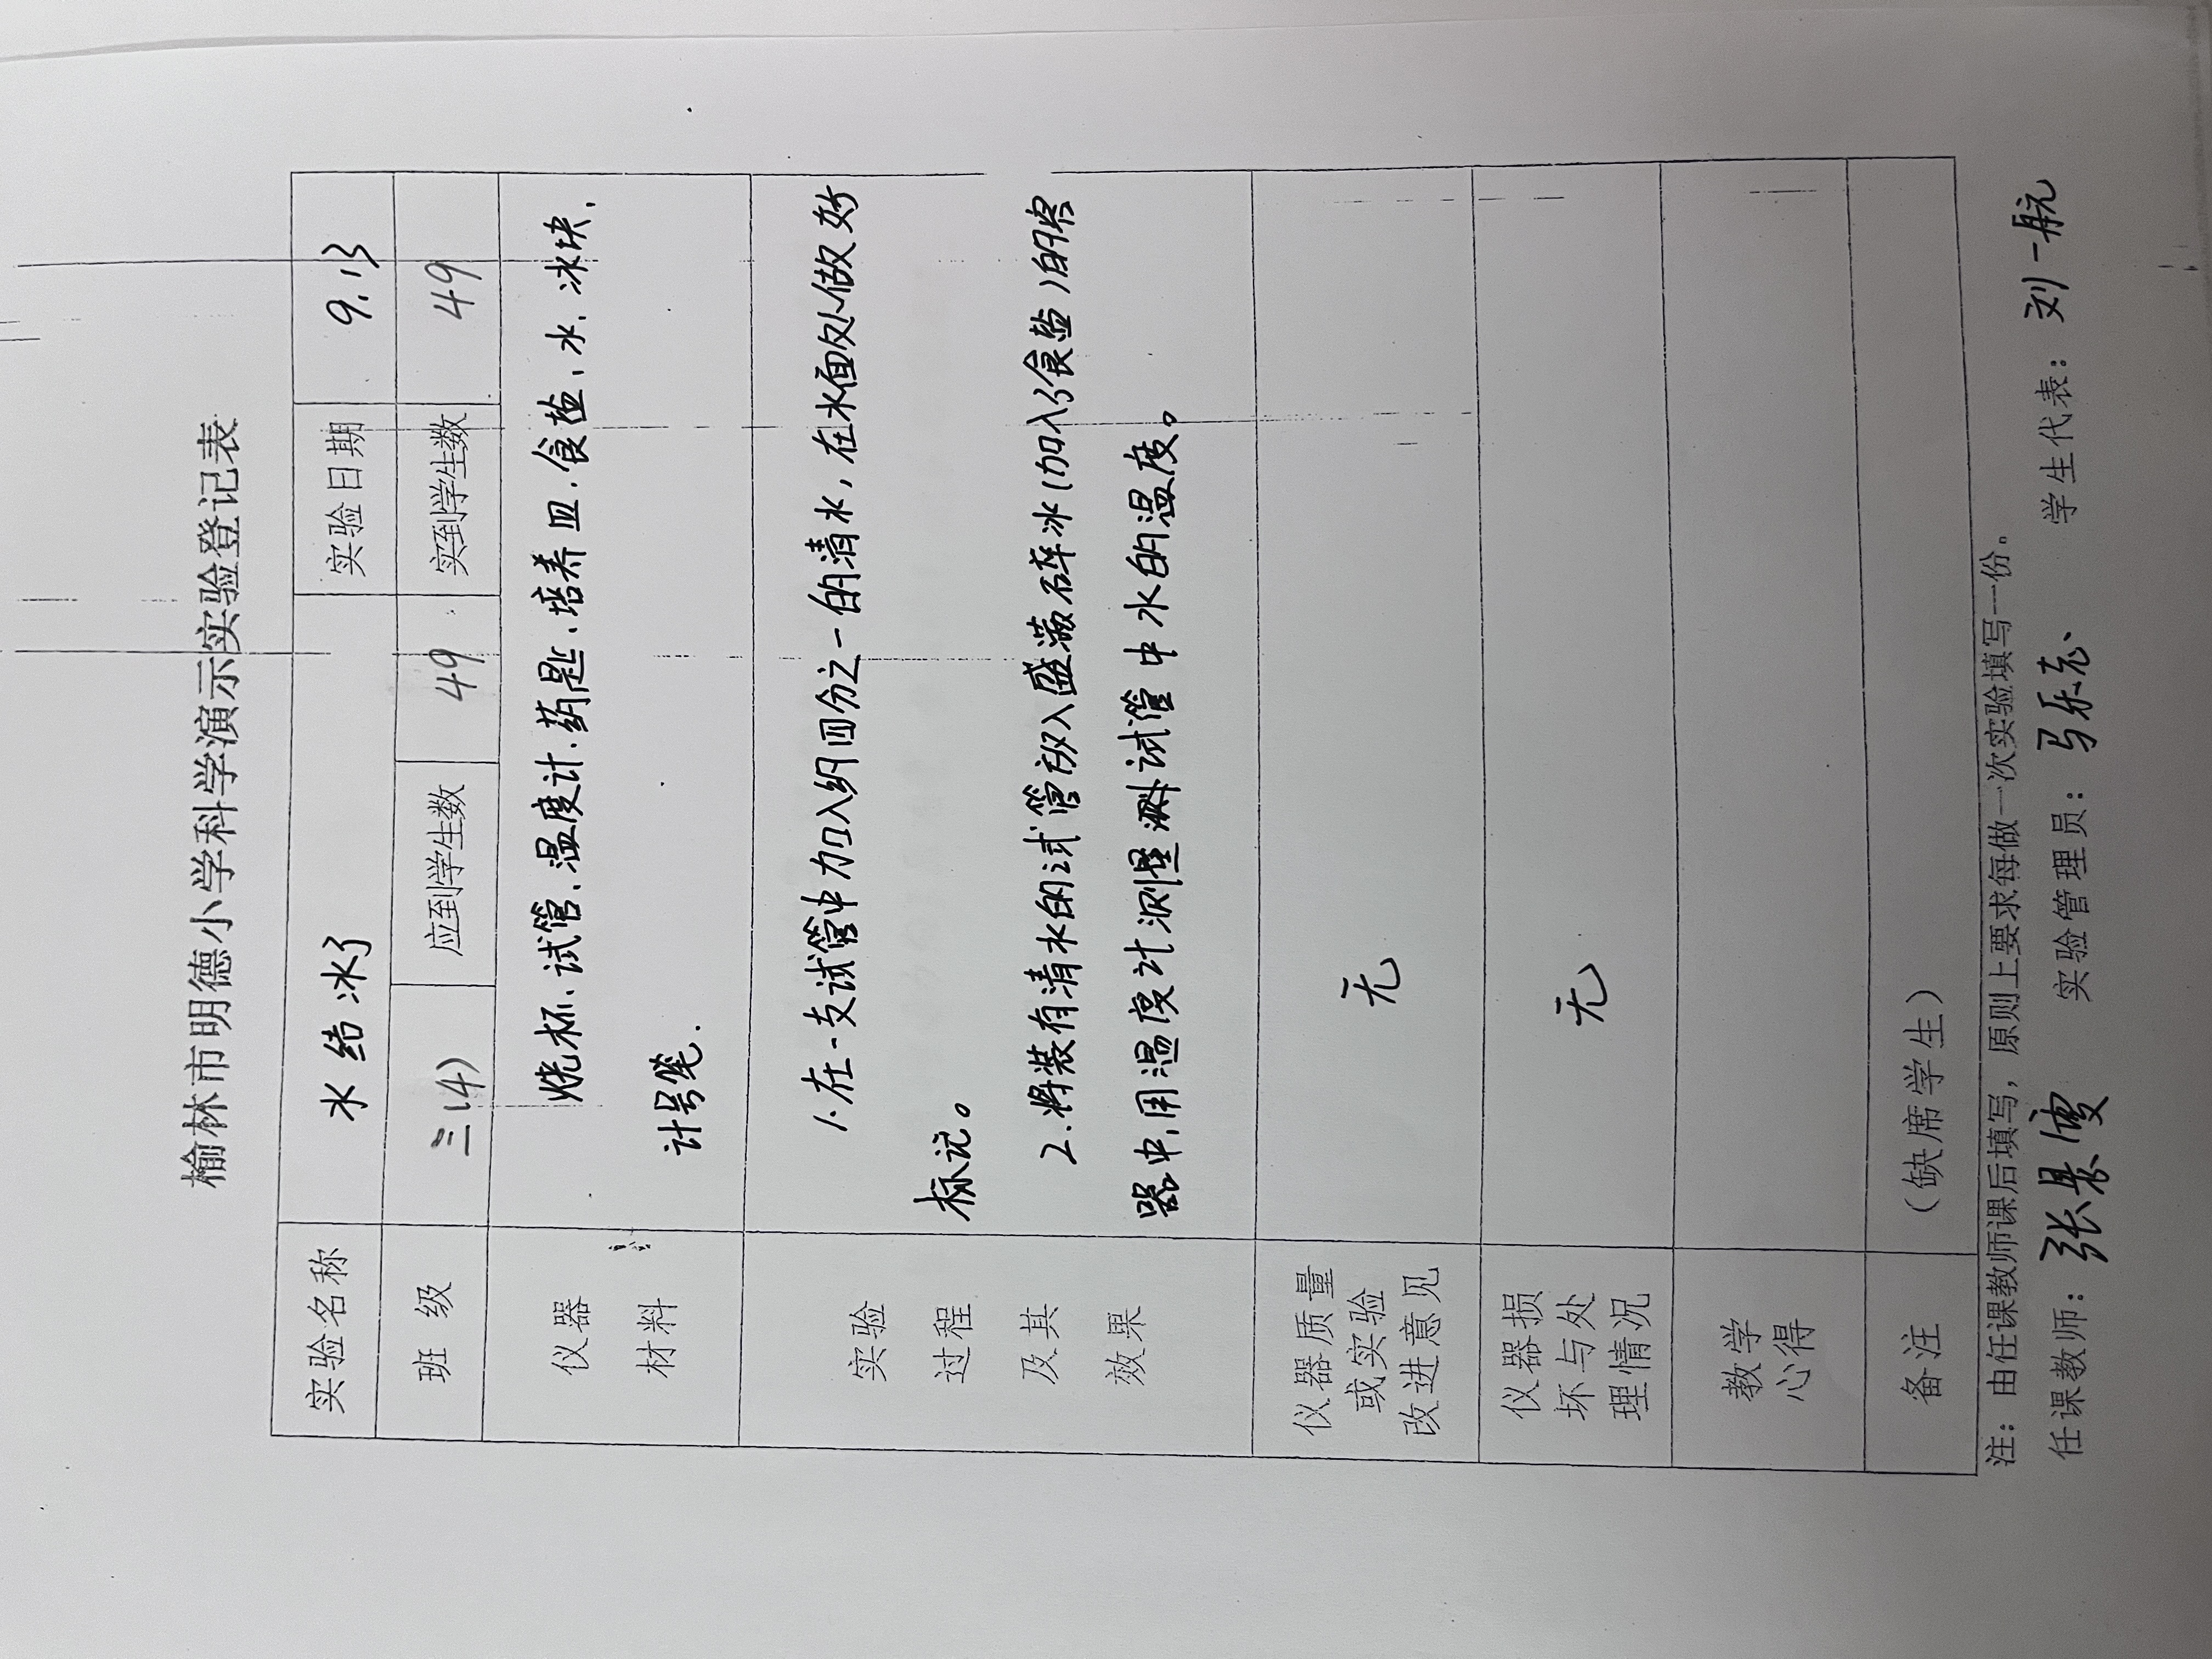 榆林市明德小学科学演示实验登记表
实验名称 水结冰了 实验日期 9.13
班级 三(4) 应到学生数 49 实到学生数 49
仪器
材料
烧杯、试管、温度计、药匙、培养皿、食盐、水、冰块、
计号笔.
实验
过程
及其
效果
1.在一支试管中加入约四分之一的清水,在水面处做好
标记。
2.将装有清水的试管放入盛满碎冰(加入了食盐)的容
器中,用温度计测量 试管中水的温度。
仪器质量
或实验
改进意见
无
仪器损
坏与处
理情况
无
教学
心得
备注 (缺席学生)
注:由任课教师课后填写,原则上要求每做一次实验填写一份.
任课教师: 张 实验管理员: 马 学生代表: 刘一航